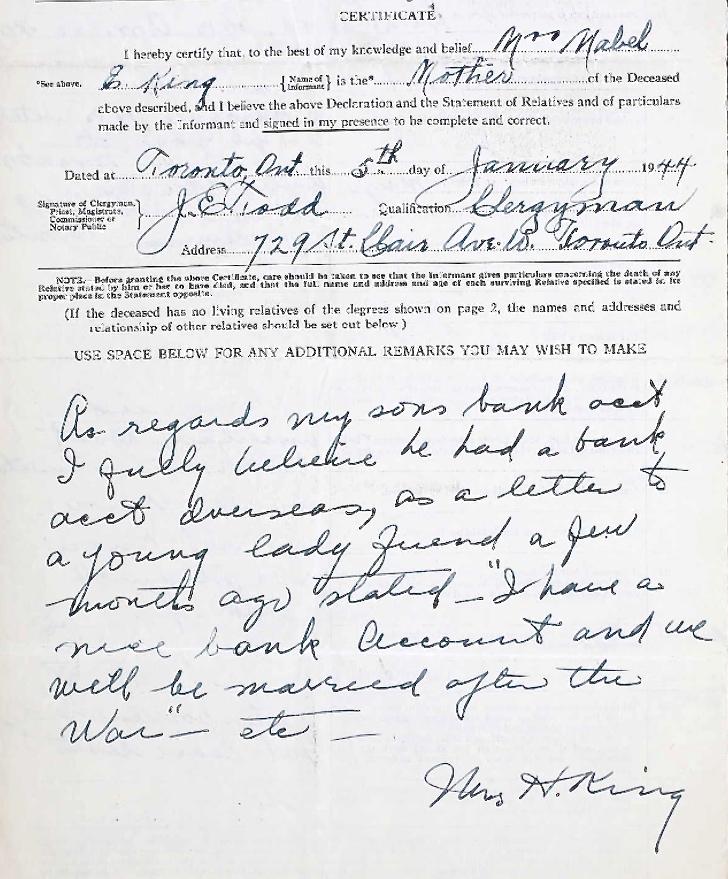 CERTIFICATE
I hereby certify that, to the best of my knowledge and belief Mrs Mabel
*See above. E. King {Name of Informant} is the* Mother of the Deceased
above described, and I believe the above Declaration and the Statement of Relatives and of particulars
made by the Informant and signed in my presence to be complete and correct.
Dated at Toronto, Ont this 5th day of January 1944
Signature of Clergyman, Priest, Magistrate, Commissioner or Notary Public } J. E. Todd Qualification Clergyman
Address 729 St. Clair Ave. W. Toronto Ont.
NOTE.—Before granting the above Certificate, care should be taken to see that the informant gives particulars concerning the death of any
Relative stated by him or her to have died, and that the full name and address and age of each surviving Relative specified is stated in its
proper place in the Statement opposite.
(If the deceased has no living relatives of the degrees shown on page 2, the names and addresses and
relationship of other relatives should be set out below)
USE SPACE BELOW FOR ANY ADDITIONAL REMARKS YOU MAY WISH TO MAKE
As regards my sons bank acct
I fully believe he had a bank
acct overseas, as a letter to
a young lady friend a few
months ago stated – "I have a
nice bank account and we
will be married after the
War" – etc –
Mrs H. King